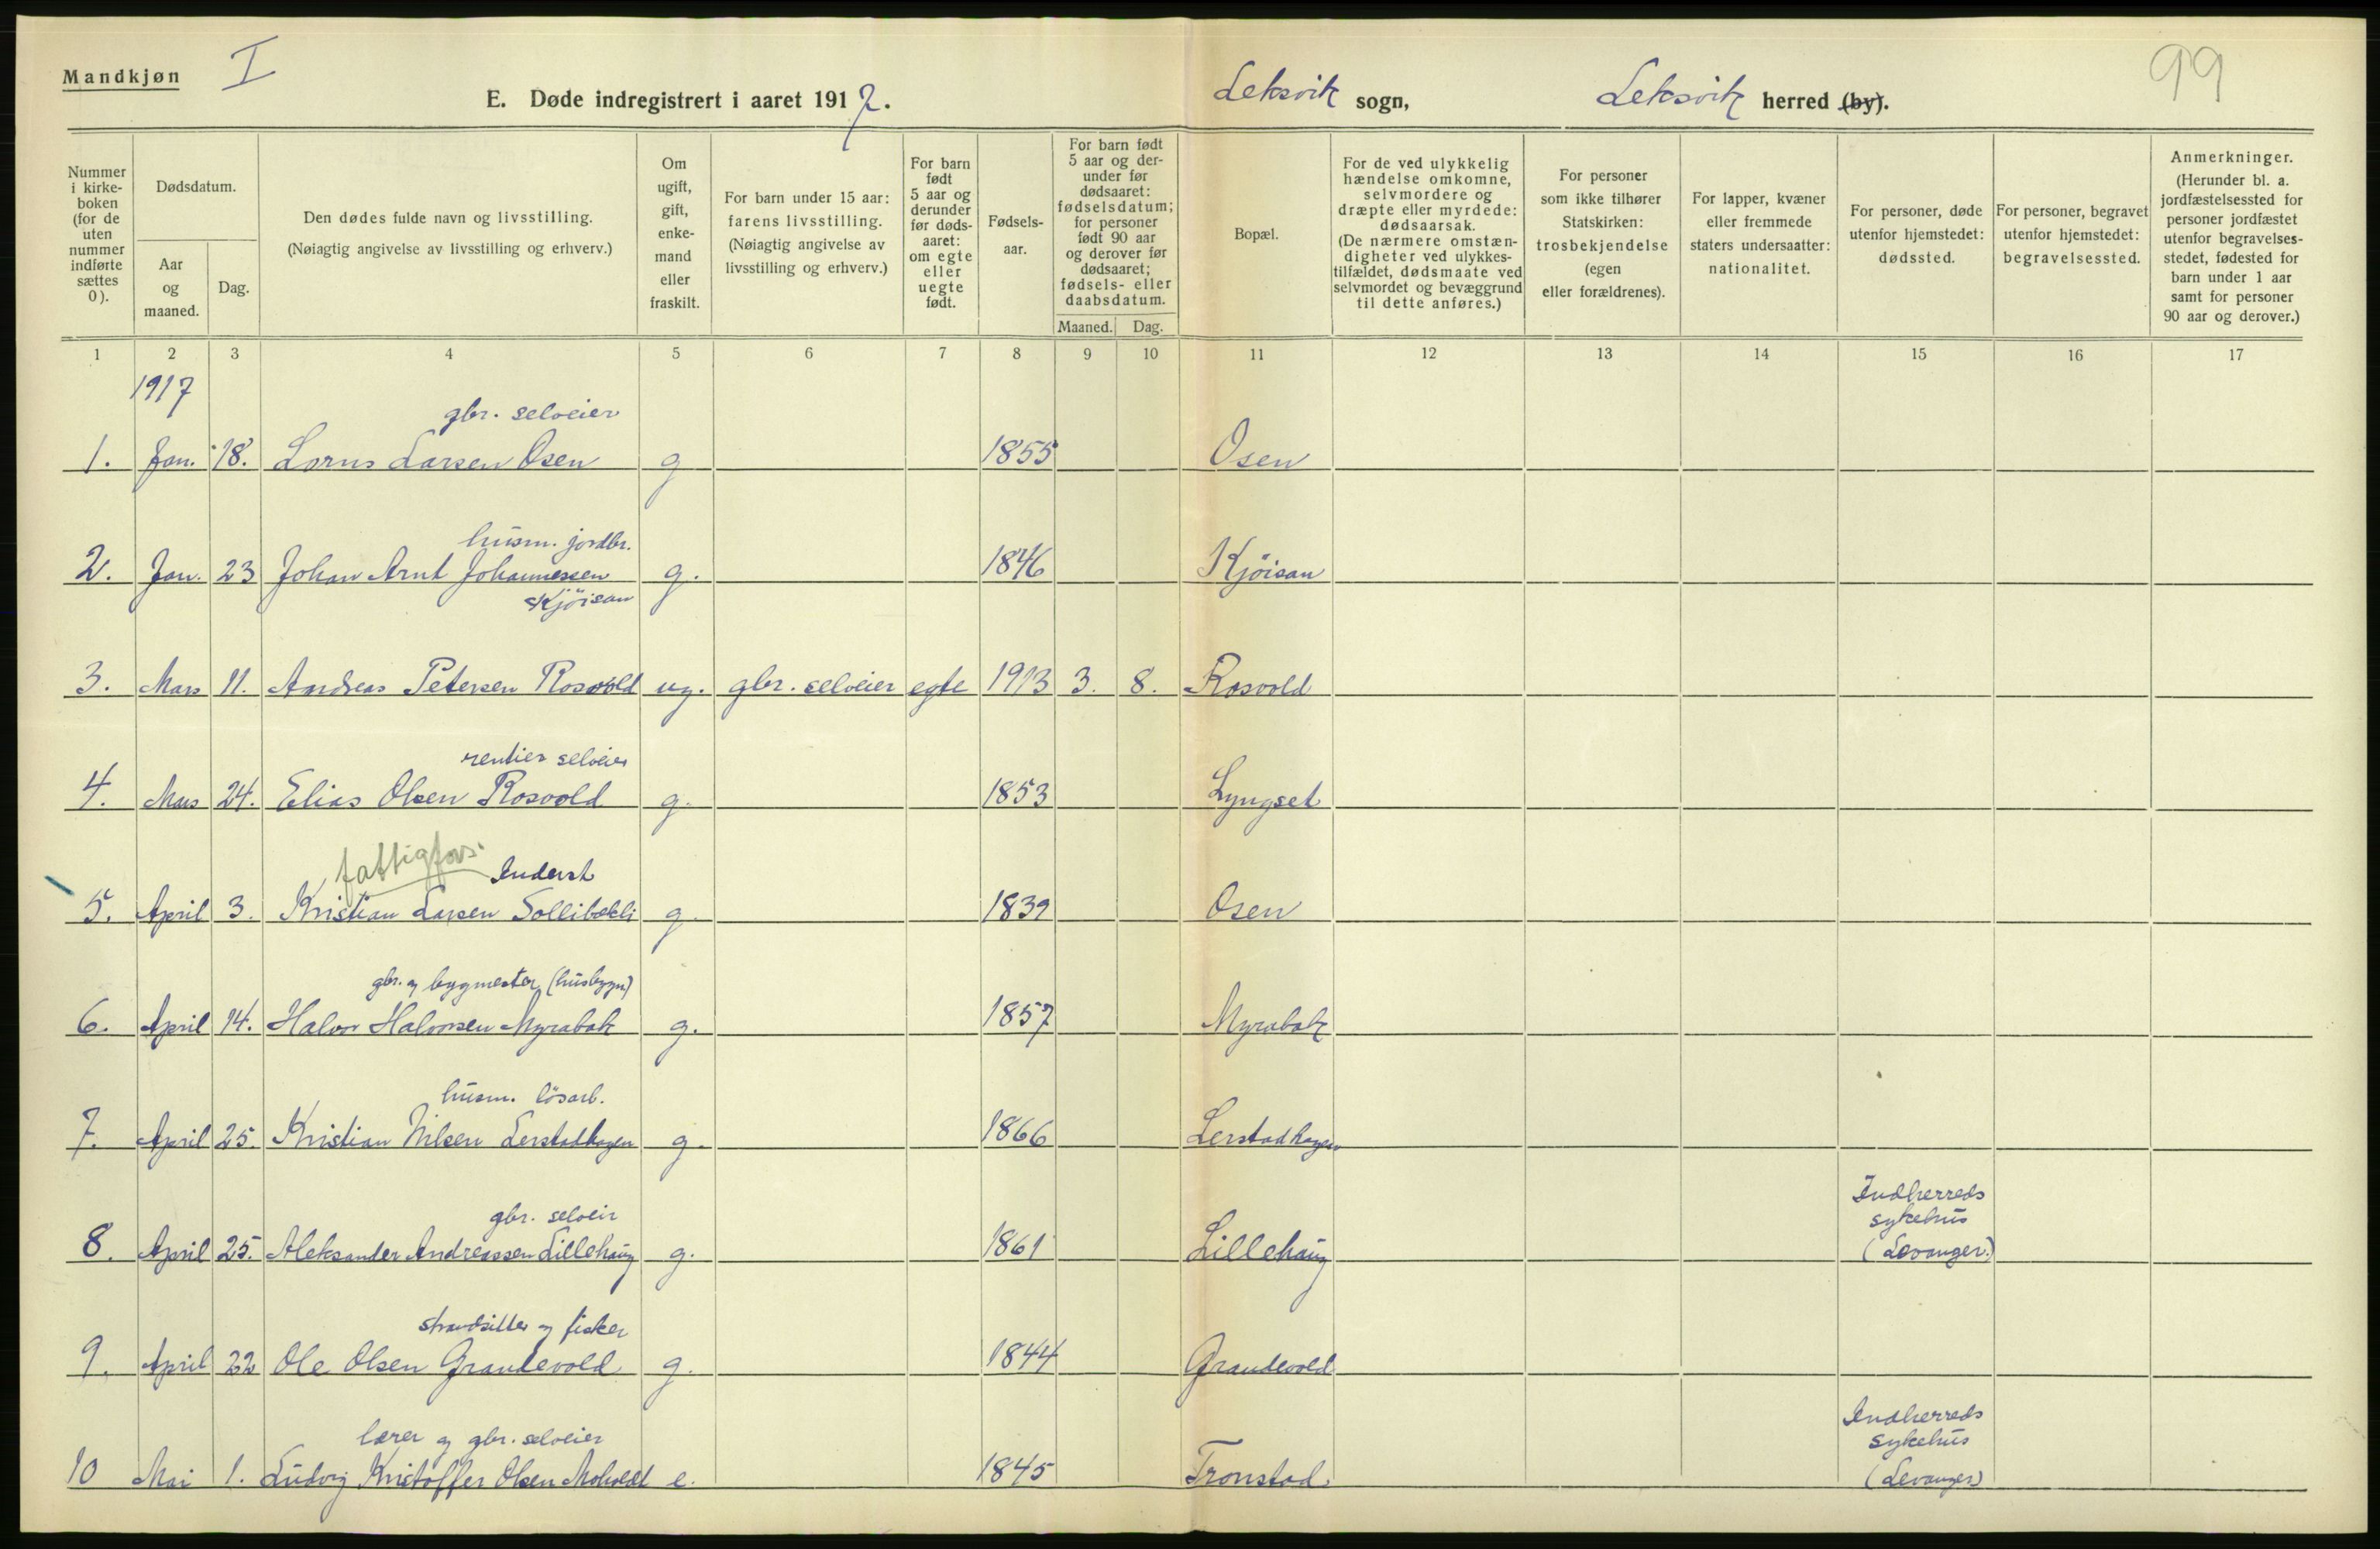 Mandkjøn I
E. Døde indregistrert i aaret 1917. Leksvik sogn, Leksvik herred (by). 99
Nummer i kirkeboken (for de uten nummer indførte sættes 0).
Dødsdatum.
Aar og maaned.
Dag.
Den dødes fulde navn og livsstilling.
(Nøiagtig angivelse av livsstilling og erhverv.)
Om ugift, gift, enkemand eller fraskilt.
For barn under 15 aar: farens livsstilling. (Nøiagtig angivelse av livsstilling og erhverv.)
For barn født 5 aar og derunder før dødsaaret: om egte eller uegte født.
Fødselsaar.
For barn født 5 aar og derunder før dødsaaret: fødselsdatum; for personer født 90 aar og derover før dødsaaret; fødsels- eller daabsdatum.
Maaned. Dag.
Bopæl.
For de ved ulykkelig hændelse omkomne, selvmordere og dræpte eller myrdede: dødsaarsak. (De nærmere omstændigheter ved ulykkestilfældet, dødsmaate ved selvmordet og bevæggrund til dette anføres.)
For personer som ikke tilhører Statskirken: trosbekjendelse (egen eller forældrenes).
For lapper, kvæner eller fremmede staters undersaatter: nationalitet.
For personer, døde utenfor hjemstedet: dødssted.
For personer, begravet utenfor hjemstedet: begravelsessted.
Anmerkninger. (Herunder bl. a. jordfæstelsessted for personer jordfæstet utenfor begravelsesstedet, fødested for barn under 1 aar samt for personer 90 aar og derover.)
1 2 3 4 5 6 7 8 9 10 11 12 13 14 15 16 17
1917
gbr. selveier
1. Jan. 18. Lorns Larsen Osen g 1855 Osen
husm. jordbr.
2. Jan. 23 Johan Arnt Johannessen g. 1846 Kjöisan
Kjöisan
3. Mars 11. Andreas Petersen Rosvold ug. gbr. selveier egte 1913 3. 8. Rosvold
rentier selveier
4. Mars 24. Elias Olsen Rosvold g. 1853 Lyngset
fattigfors. Inderst
5. April 3. Kristian Larsen Sollibakli g. 1839 Osen
gbr. og bygmester (husbygn)
6. April 14. Halvor Halvorsen Myrabak g. 1857 Myrabak
husm. lösarb.
7. April 25. Kristian Nilsen Lerstadhagen g. 1866 Lerstadhagen
gbr. selveir Indherreds
sykehus
8. April 25. Aleksander Andreassen Lillehaug g. 1861 Lillehaug (Levanger.)
strandsitter og fisker
9. April 22 Ole Olsen Grandevold g. 1844 Grandevold
lærer og gbr. selveier Indherreds
sykehus
10 Mai 1. Ludvig Kristoffer Olsen Moholdt e. 1845 Tronstad (Levanger)